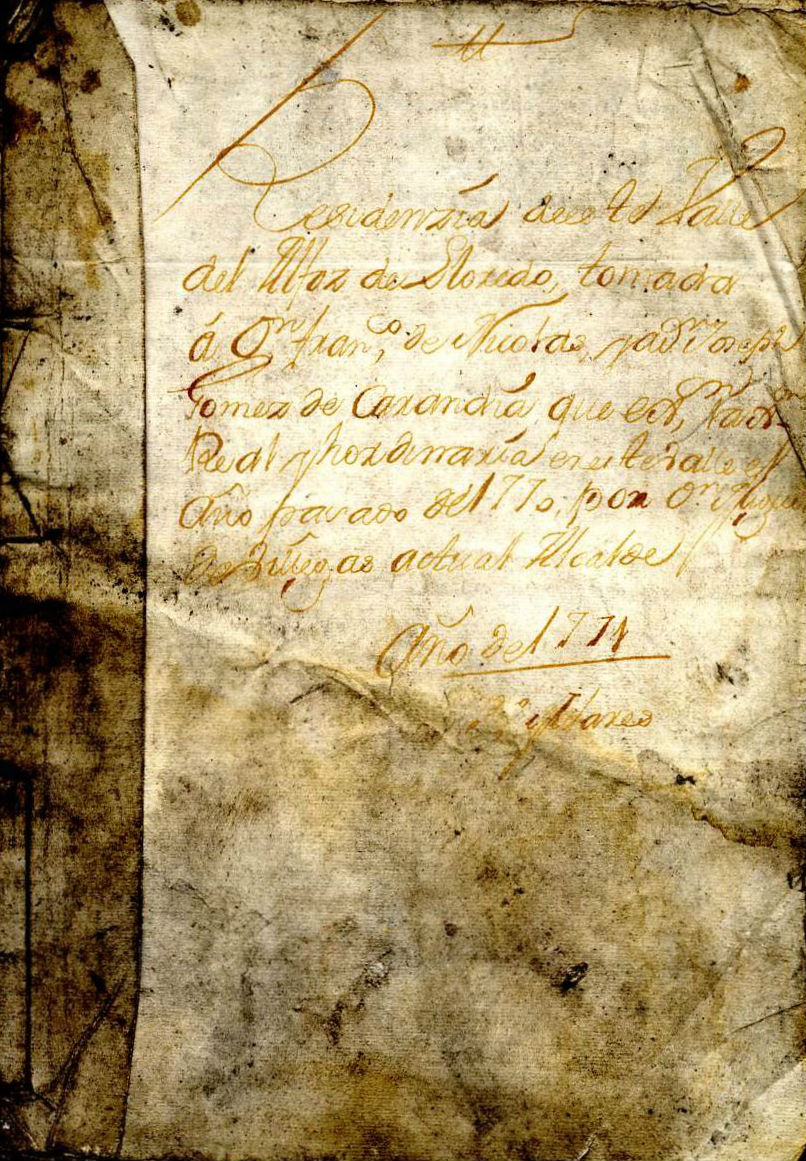 Residenzia deeste Valle
del Alfoz de Lloredo, tomada
á Dn. franco. de Nicolas, y a Dn. Joseph
Gomez de Carandia, que
Real y hordinaria en este Valle el
Año pasado de 1770, por Dn.
de Villegas actual Alcalde
Año de 1771